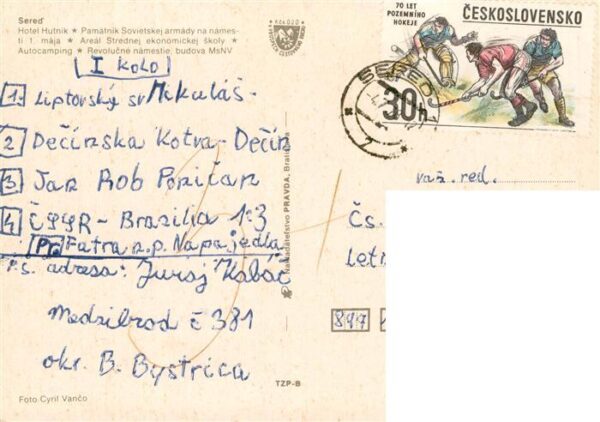 Sereď
Hotel Hutník * Pamätník Sovietskej armády na námes-
tí 1. mája * Areál Strednej ekonomickej školy *
Autocamping * Revolučné námestie, budova MsNV
I KOLO
1. Liptovský sv Mikuláš-
2 Dečínska Kotva-Dečín
3 Jan Rob Poričan
4 ČSSR - Brazilia 1:3
Pr. Fatra n.p. Napajedla
P.s. adresa: Juraj Kabáč
Medzibrod č 381
okr. B. Bystrica
Foto Cyril Vančo
TZP-B
Nakladateľstvo PRAVDA, Bratislava
70 LET
POZEMNÍHO
HOKEJE
ČESKOSLOVENSKO
30h
SEREĎ
váž. red.
Čs.
Letn